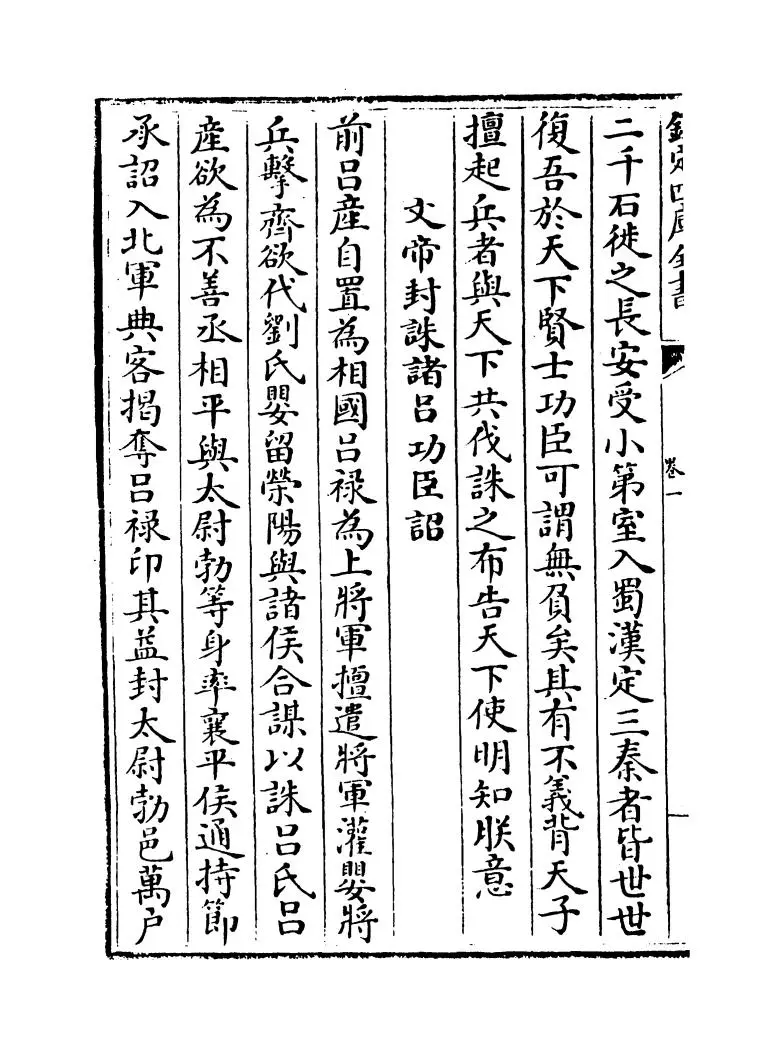 欽定四庫全書
卷一
二千石徙之長安受小第室入蜀漢定三秦者皆世世
復吾於天下賢士功臣可謂無負矣其有不義背天子
擅起兵者與天下共伐誅之布告天下使明知朕意
文帝封誅諸吕功臣詔
前吕産自置為相國吕祿為上將軍擅遣將軍灌嬰將
兵擊齊欲代劉氏嬰留榮陽與諸侯合謀以誅吕氏吕
産欲為不善丞相平與太尉勃等身率襄平侯通持節
承詔入北軍典客揭奪吕祿印其益封太尉勃邑萬户